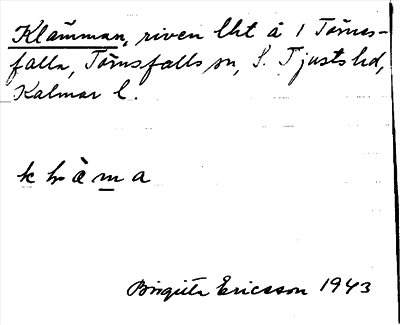 Klämman, riven lht å 1 Törns-
falla, Törnsfalls sn, S. Tjusts hd,
Kalmar l.
Birgitta Ericsson 1943